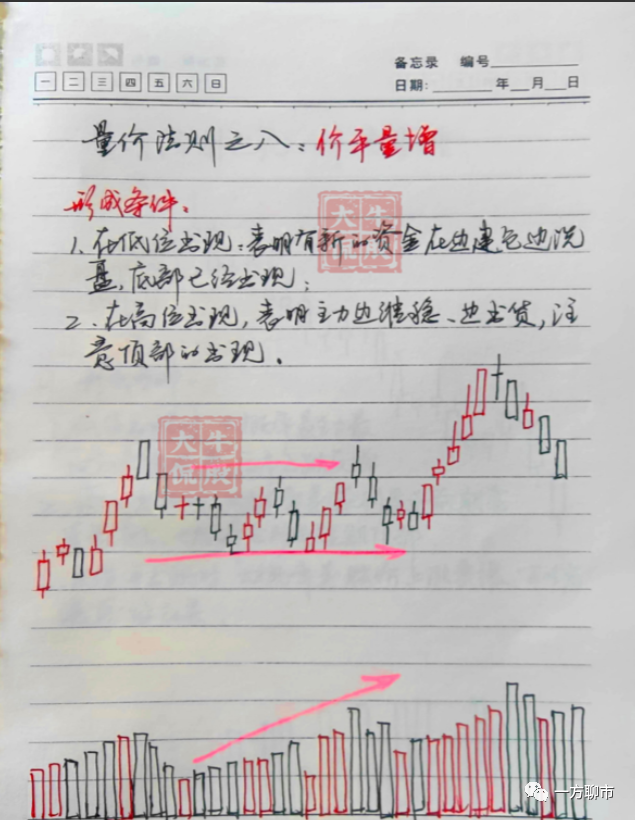 备忘录 编号
一 二 三 四 五 六 日
日期: 年 月 日
量价法则之八:价平量增
形成条件:
1、在低位出现:表明有新的资金在边建仓边洗
盘,底部已经出现;
2、在高位出现,表明主力边维稳、边出货,注
意顶部的出现。
大牛
侃股
大牛
侃股
一方聊市